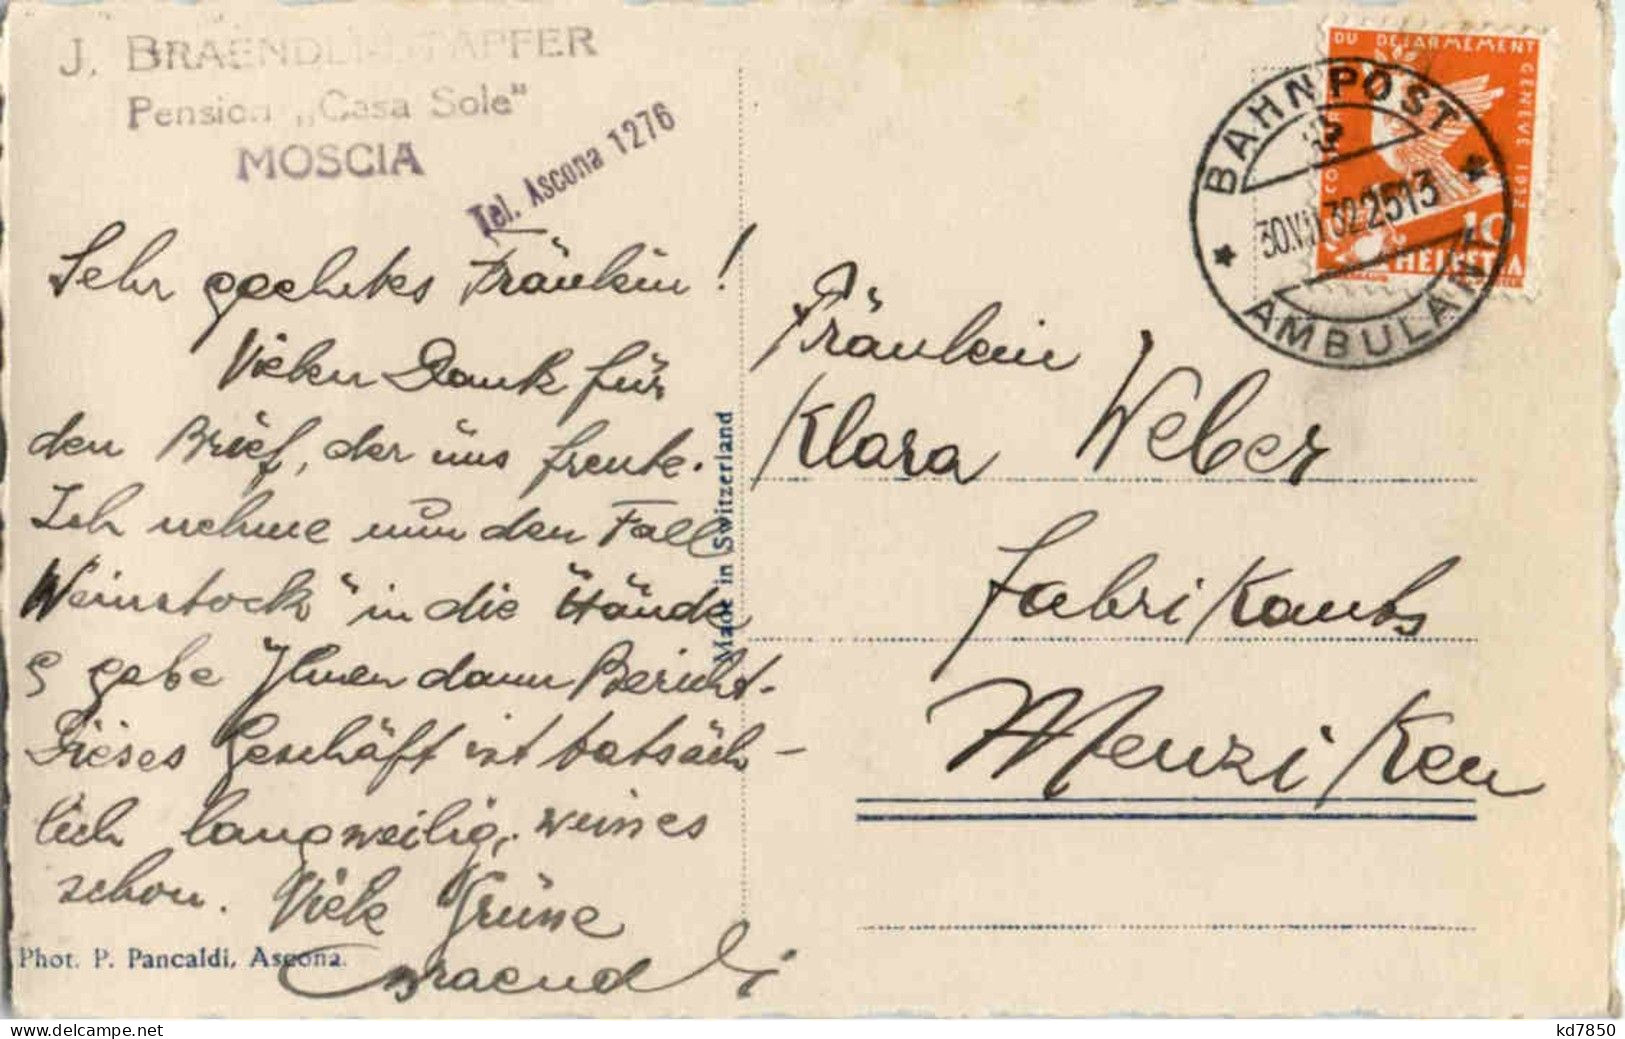 J. BRAENDLI-TAPFER
Pension „Casa Sole"
MOSCIA
Tel. Ascona 1276
Sehr geehrtes Fräulein!
Vielen Dank für
den Brief, der uns freute.
Ich nehme nun den Fall
Weinstock" in die Hände
& gebe Ihnen dann Bericht.
Dieses Geschäft ist tatsäch-
lich langweilig,
schon. Viele Grüsse
Braendli
Phot. P. Pancaldi, Ascona.
Made in Switzerland
DU DÉSARMEMENT
GENÈVE 1932
10
HELVETIA
BAHNPOST
30.VII.32 2513
AMBULANT
Fräulein
Klara Weber
Fabrikants
Menziken
kd7850